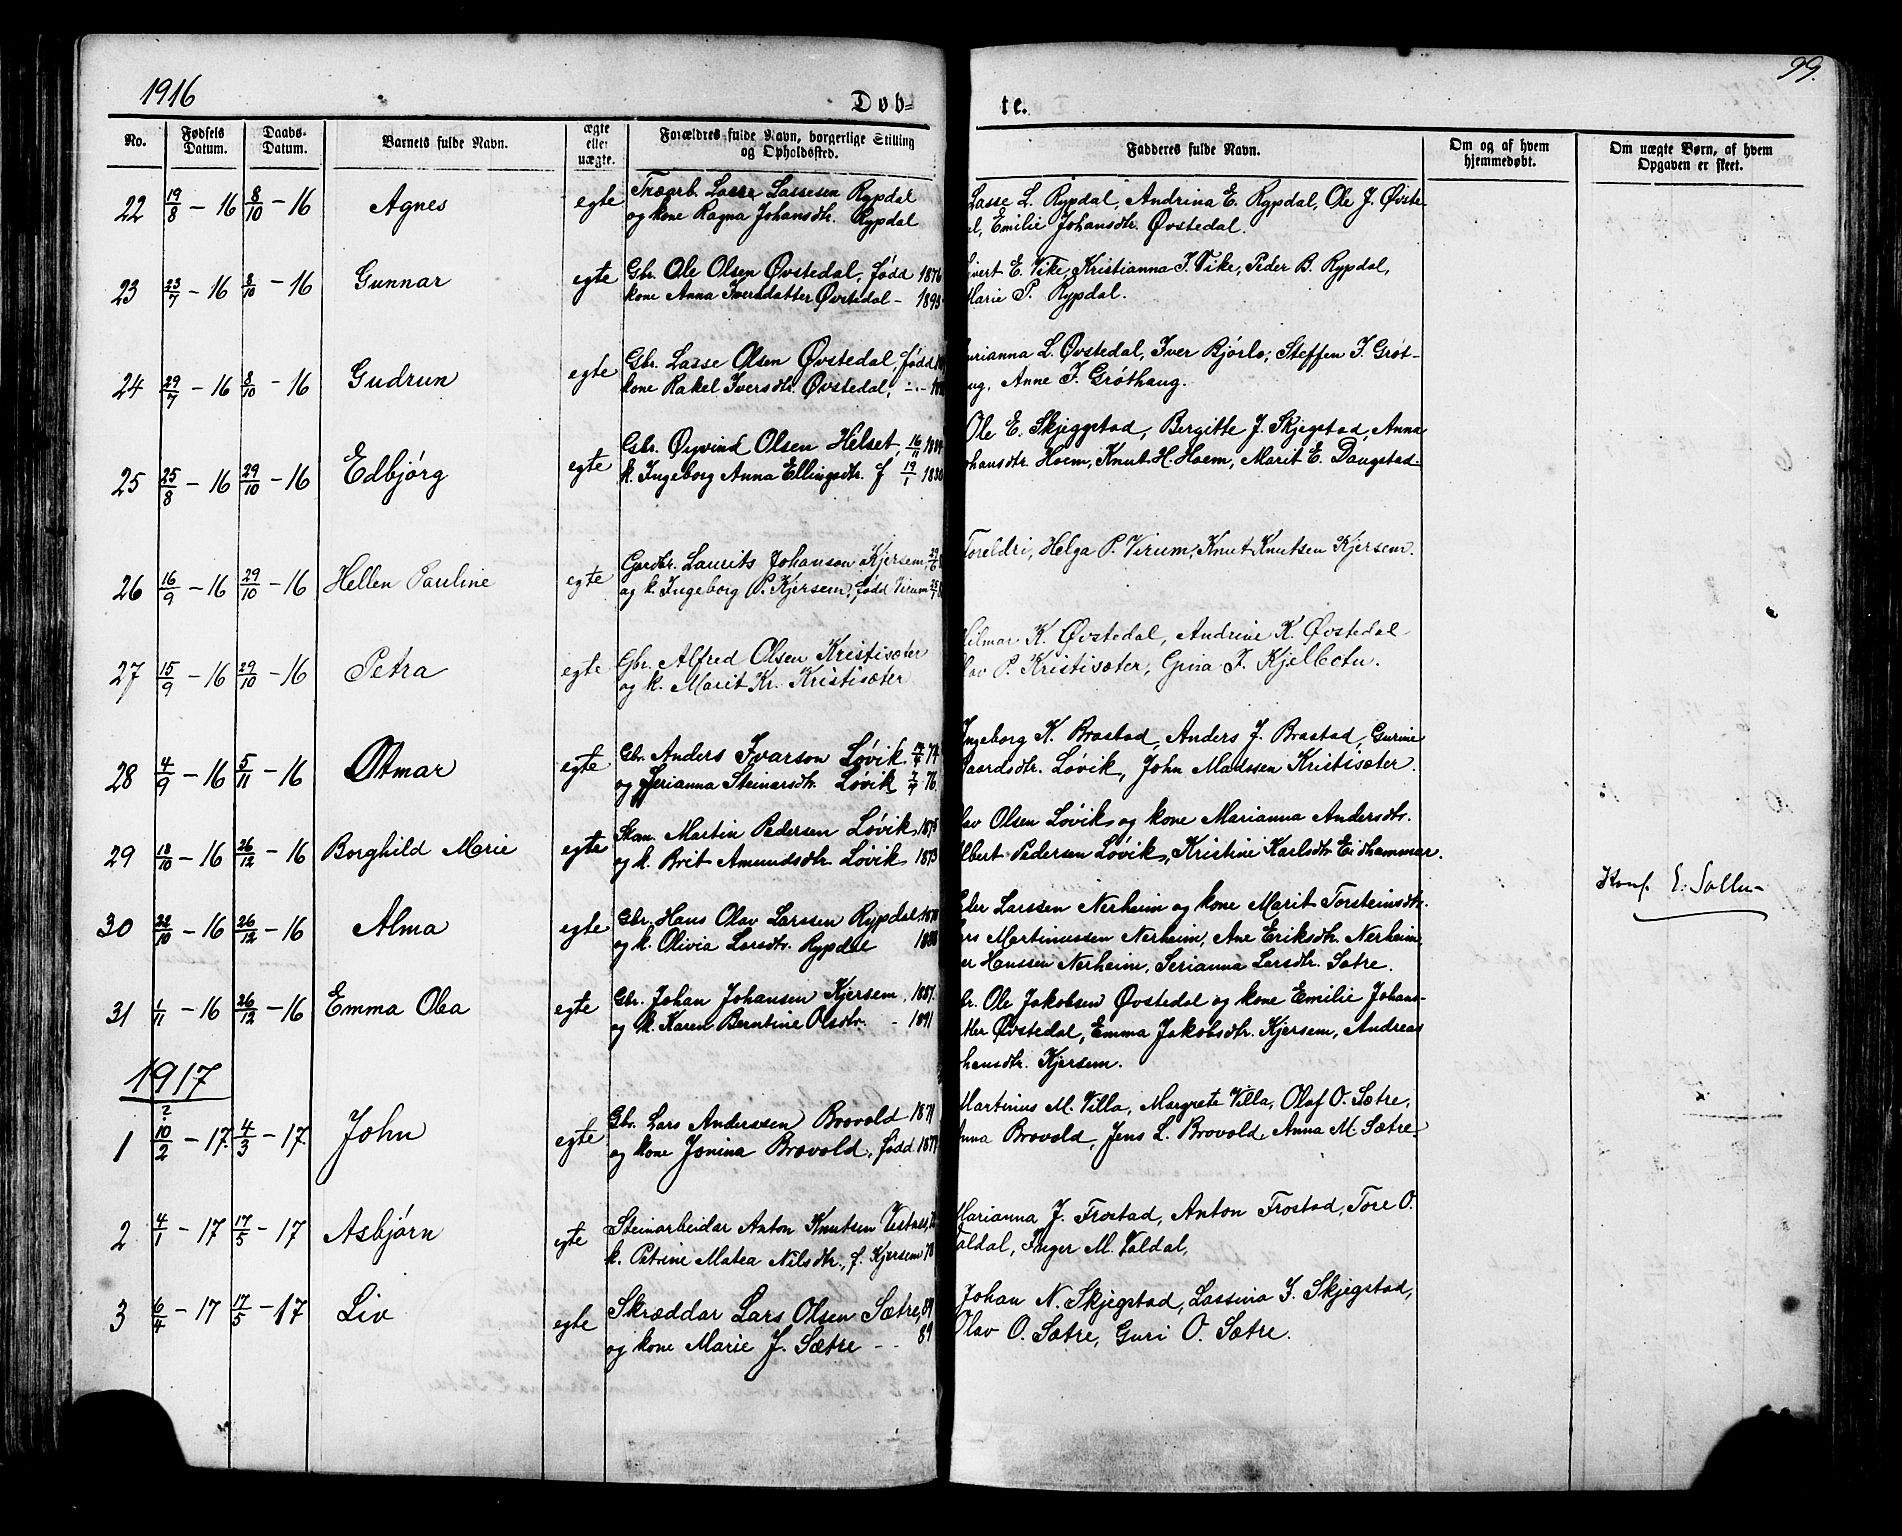 1916
Døb-
te.
99.
No.
Fødsels Datum.
Daabs- Datum.
Barnets fulde Navn.
ægte eller uægte.
Forældres fulde Navn, borgerlige Stilling og Opholdssted.
Fadderes fulde Navn.
Om og af hvem hjemmedøbt.
Om uægte Børn, af hvem Opgaven er skeet.
22 19/8 - 16 8/10 - 16 Agnes egte Træarb. Lasse Lassesen Rypdal
og kone Ragna Johansdtr. Rypdal
Lasse L. Rypdal, Andrina E. Rypdal, Ole J. Øvste-
l, Emilie Johansdtr. Øvstedal.
23 23/7 - 16 8/10 - 16 Gunnar egte Gbr. Ole Olsen Øvstedal, født 1876
kone Anna Iversdatter Øvstedal - 1893
Evert E. Vike, Kristianna J. Vike, Peder B. Rypdal,
Marie P. Rypdal.
24 29/7 - 16 8/10 - 16 Gudrun egte Gbr. Lasse Olsen Øvstedal, født
kone Rakel Iversdtr. Øvstedal,
L. Øvstedal, Iver Bjørlo, Steffen J. Grøt-
ug, Anne J. Grøthaug.
25 25/8 - 16 29/10 - 16 Edbjørg egte Gbr. Øyvind Olsen Helset, 16/11
k. Ingeborg Anna Ellingsdtr. f 19/1
Ole E. Skjeggstad, Bergitte J. Skjegstad, Anna
Johansdtr. Hoem, Knut H. Hoem, Marit E. Daugstad
26 16/9 - 16 29/10 - 16 Hellen Pauline egte Gardbr. Laurits Johanson Kjersem,
og k. Ingeborg P. Kjersem, født Virum
Foreldri, Helga P. Virum, Knut Knutsen Kjersem.
27 15/9 - 16 29/10 - 16 Petra egte Gbr. Alfred Olsen Kristisæter
og k. Marit Kr. Kristisæter
Hilmar K. Øvstedal, Andrine K. Øvstedal
Olav P. Kristisæter, Gina J. Kjelbotn.
28 4/9 - 16 5/11 - 16 Otmar egte Gbr. Anders Ivarson Løvik 74
og Serianna Steinarsdtr. Løvik 76.
Ingeborg K. Brastad, Anders J. Brastad, Gurine
Baardsdtr. Løvik, John Madssen Kristisæter.
29 18/10 - 16 26/12 - 16 Borghild Marie egte Skom. Martin Pedersen Løvik
og k. Brit Amundsdtr. Løvik 1873
Olav Olsen Løvik og kone Marianna Andersdtr.
Albert Pedersen Løvik, Kristine Karlsdtr Eidhammer.
Konf.
30 22/10 - 16 26/12 - 16 Alma egte Gbr. Hans Olav Larssen Rypdal
og k. Olivia Larsdtr. Rypdal
Peder Larssen Nerheim og kone Marit Torsteinsdtr.
Lars Martinussen Nerheim, Ane Eriksdtr. Nerheim
Hanssen Nerheim, Serianna Larsdtr. Sætre.
31 1/11 - 16 26/12 - 16 Emma Olea egte Gbr. Johan Johansen Kjersem, 1887.
og k. Karen Berntine Olsdtr. - 1891
Gbr. Ole Jakobsen Øvstedal og kone Emilie Johans-
dtter Øvstedal, Emma Jakobsdtr. Kjersem, Andreas
Johansdtr. Kjersem.
1917
?
1 10/2 - 17. 4/3 - 17. John egte Gbr. Lars Anderssen Brovold 1871
og kone Jonina Brovold, født 1877
Martinus M. Villa, Margrete Villa, Olaf O. Sætre,
Anna Brovold, Jens L. Brovold, Anna M. Sætre
2 4/1 - 17 17/5 - 17 Asbjørn egte Steinarbeidar Anton Knutsen Vestnes
k. Petrine Matea Nilsdtr., f. Kjersem 78
Marianna J. Frostad, Anton Frostad, Tore O.
Valdal, Inger M. Valdal,
3 6/4 - 17 17/5 - 17 Liv egte Skræddar Lars Olsen Sætre,
og kone Marie J. Sætre - - 89
Johan N. Skjegstad, Lassina J. Skjegstad,
Olav O. Sætre, Guri O. Sætre.